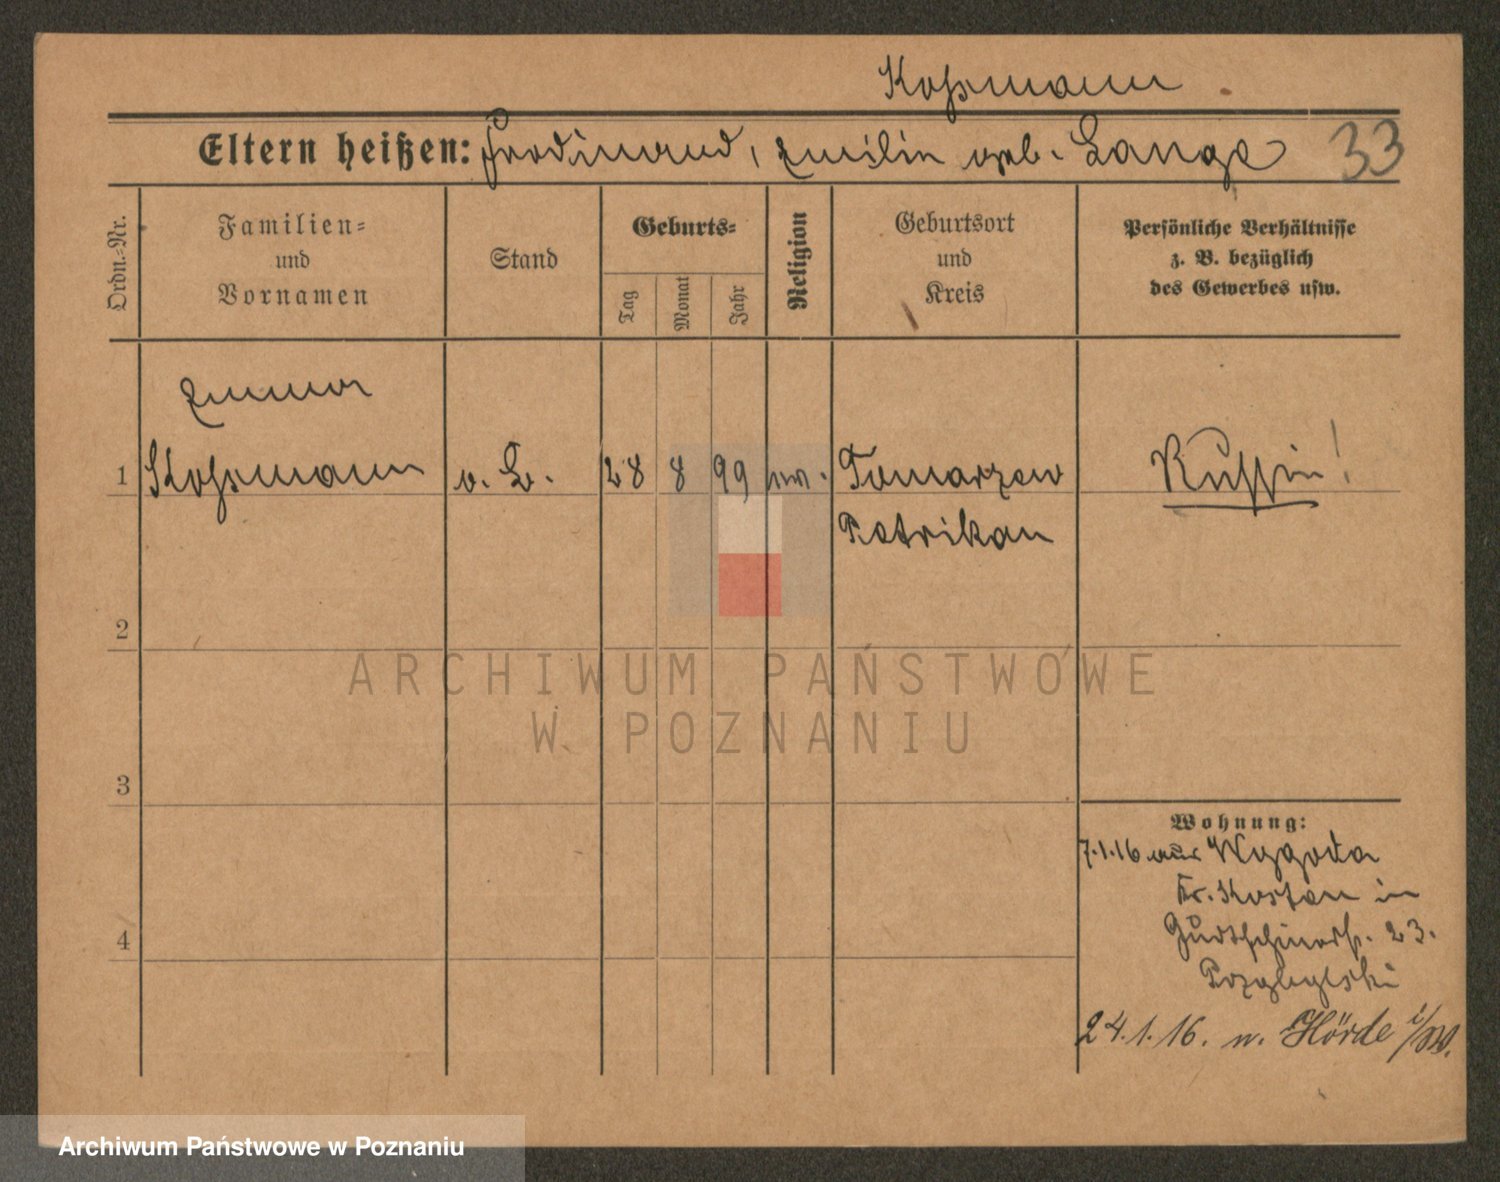 Koßmann
Eltern heißen: Ferdinand, Emilie geb. Lange 33
Ordn.=Nr.
Familien=
und
Vornamen
Stand
Geburts=
Tag
Monat
Jahr
Religion
Geburtsort
und
Kreis
Persönliche Verhältnisse
z. B. bezüglich
des Gewerbes usw.
Emma
1 Koßmann v. B. 28 8 99 ev. Tomarzew Russin!
Petrikau
2
ARCHIWUM PAŃSTWOWE
W POZNANIU
3
Wohnung:
7.1.16 aus
Kr. Kosten in
4
23.
24.1.16. n. Hörde i/W.
Archiwum Państwowe w Poznaniu